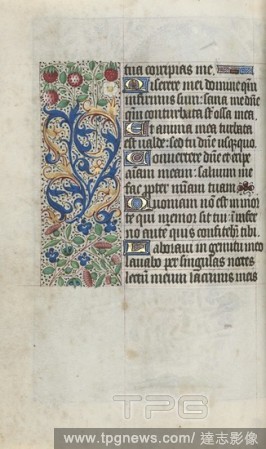 tua corripias me.
Miserere mei domine qm̄
infirmus sum: sana me dn̄e
qm̄ conturbata st̄ ossa mea.
Et anima mea turbata
est valde: sed tu dn̄e usquequo.
Convertere dn̄e et eripe
am̄am meam: salvum me
fac ꝓpter mīam tuam
Quoniam non est in mor
te qui memor sit tui: in īfer
no autē quis confitebit̄ tibi.
Laboravi in gemitu meo
lavabo per singulas noctes
lectū meum lacrimis meis
TPG
www.tpgnews.com / 達志影像